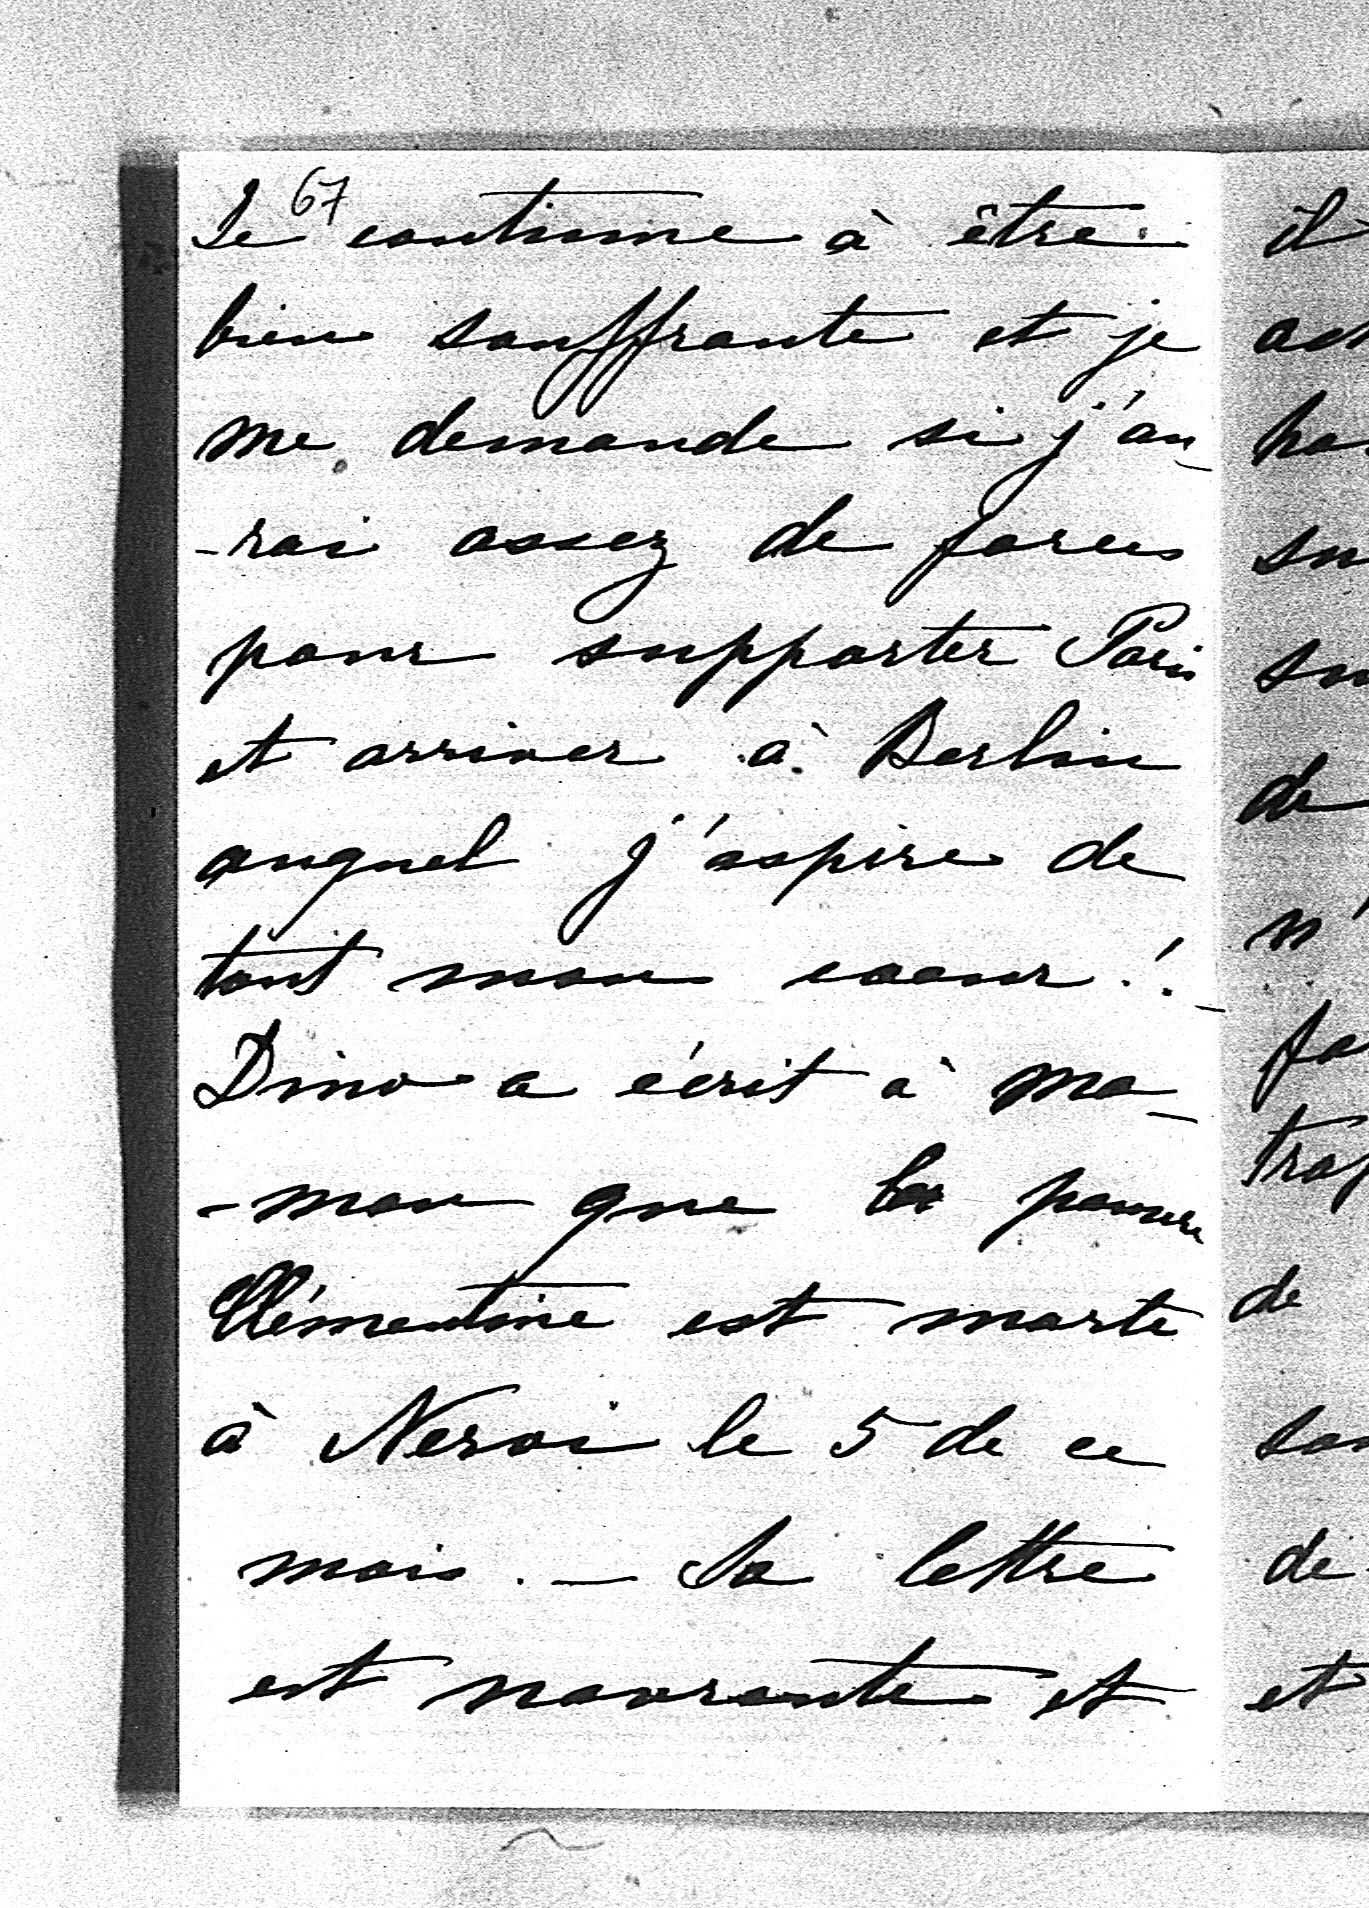 67
Je continue à être
bien souffrante et je
me demande si j'au-
-rai assez de forces
pour supporter Paris
et arriver à Berlin
auquel j'aspire de
tout mon coeur!. _
Dino a écrit à ma-
-man que la pauvre
Clémentine est morte
à Nervi le 5 de ce
mois. — Sa lettre
est navrante et
il
de
n'
de
de
et